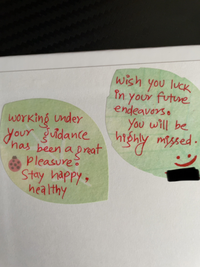 working under
your guidance
has been a great
pleasure.
Stay happy.
healthy
wish you luck
in your future
endeavors.
You will be
highly missed.